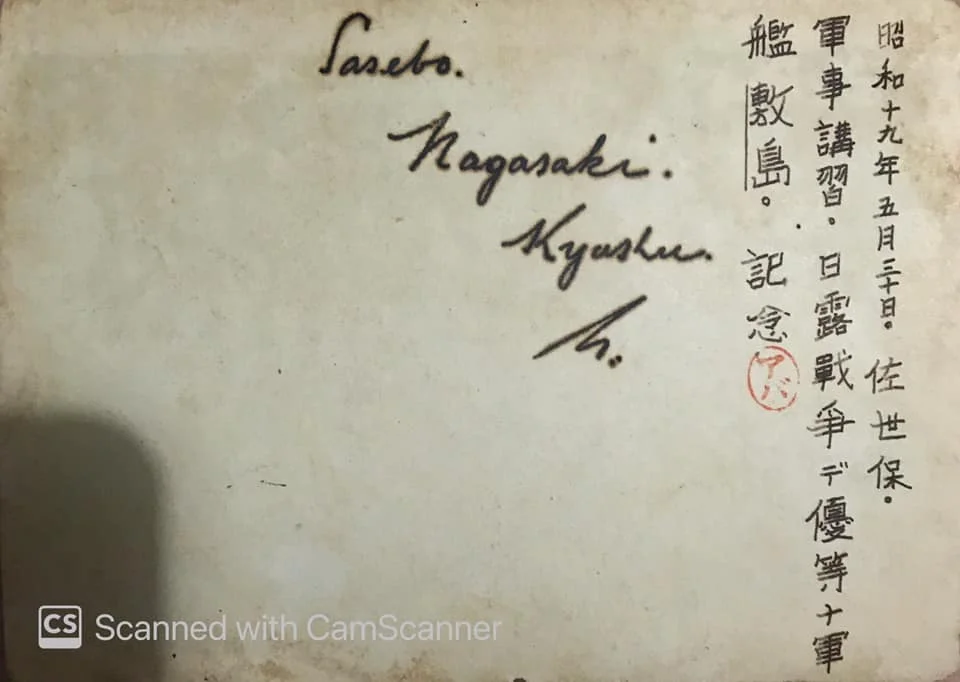 昭和十九年五月三十日。佐世保。
軍事講習。日露戰爭デ優等ナ軍
艦敷島。記念
アバ
Sasebo.
Nagasaki.
Kyushu.
h.
CS Scanned with CamScanner